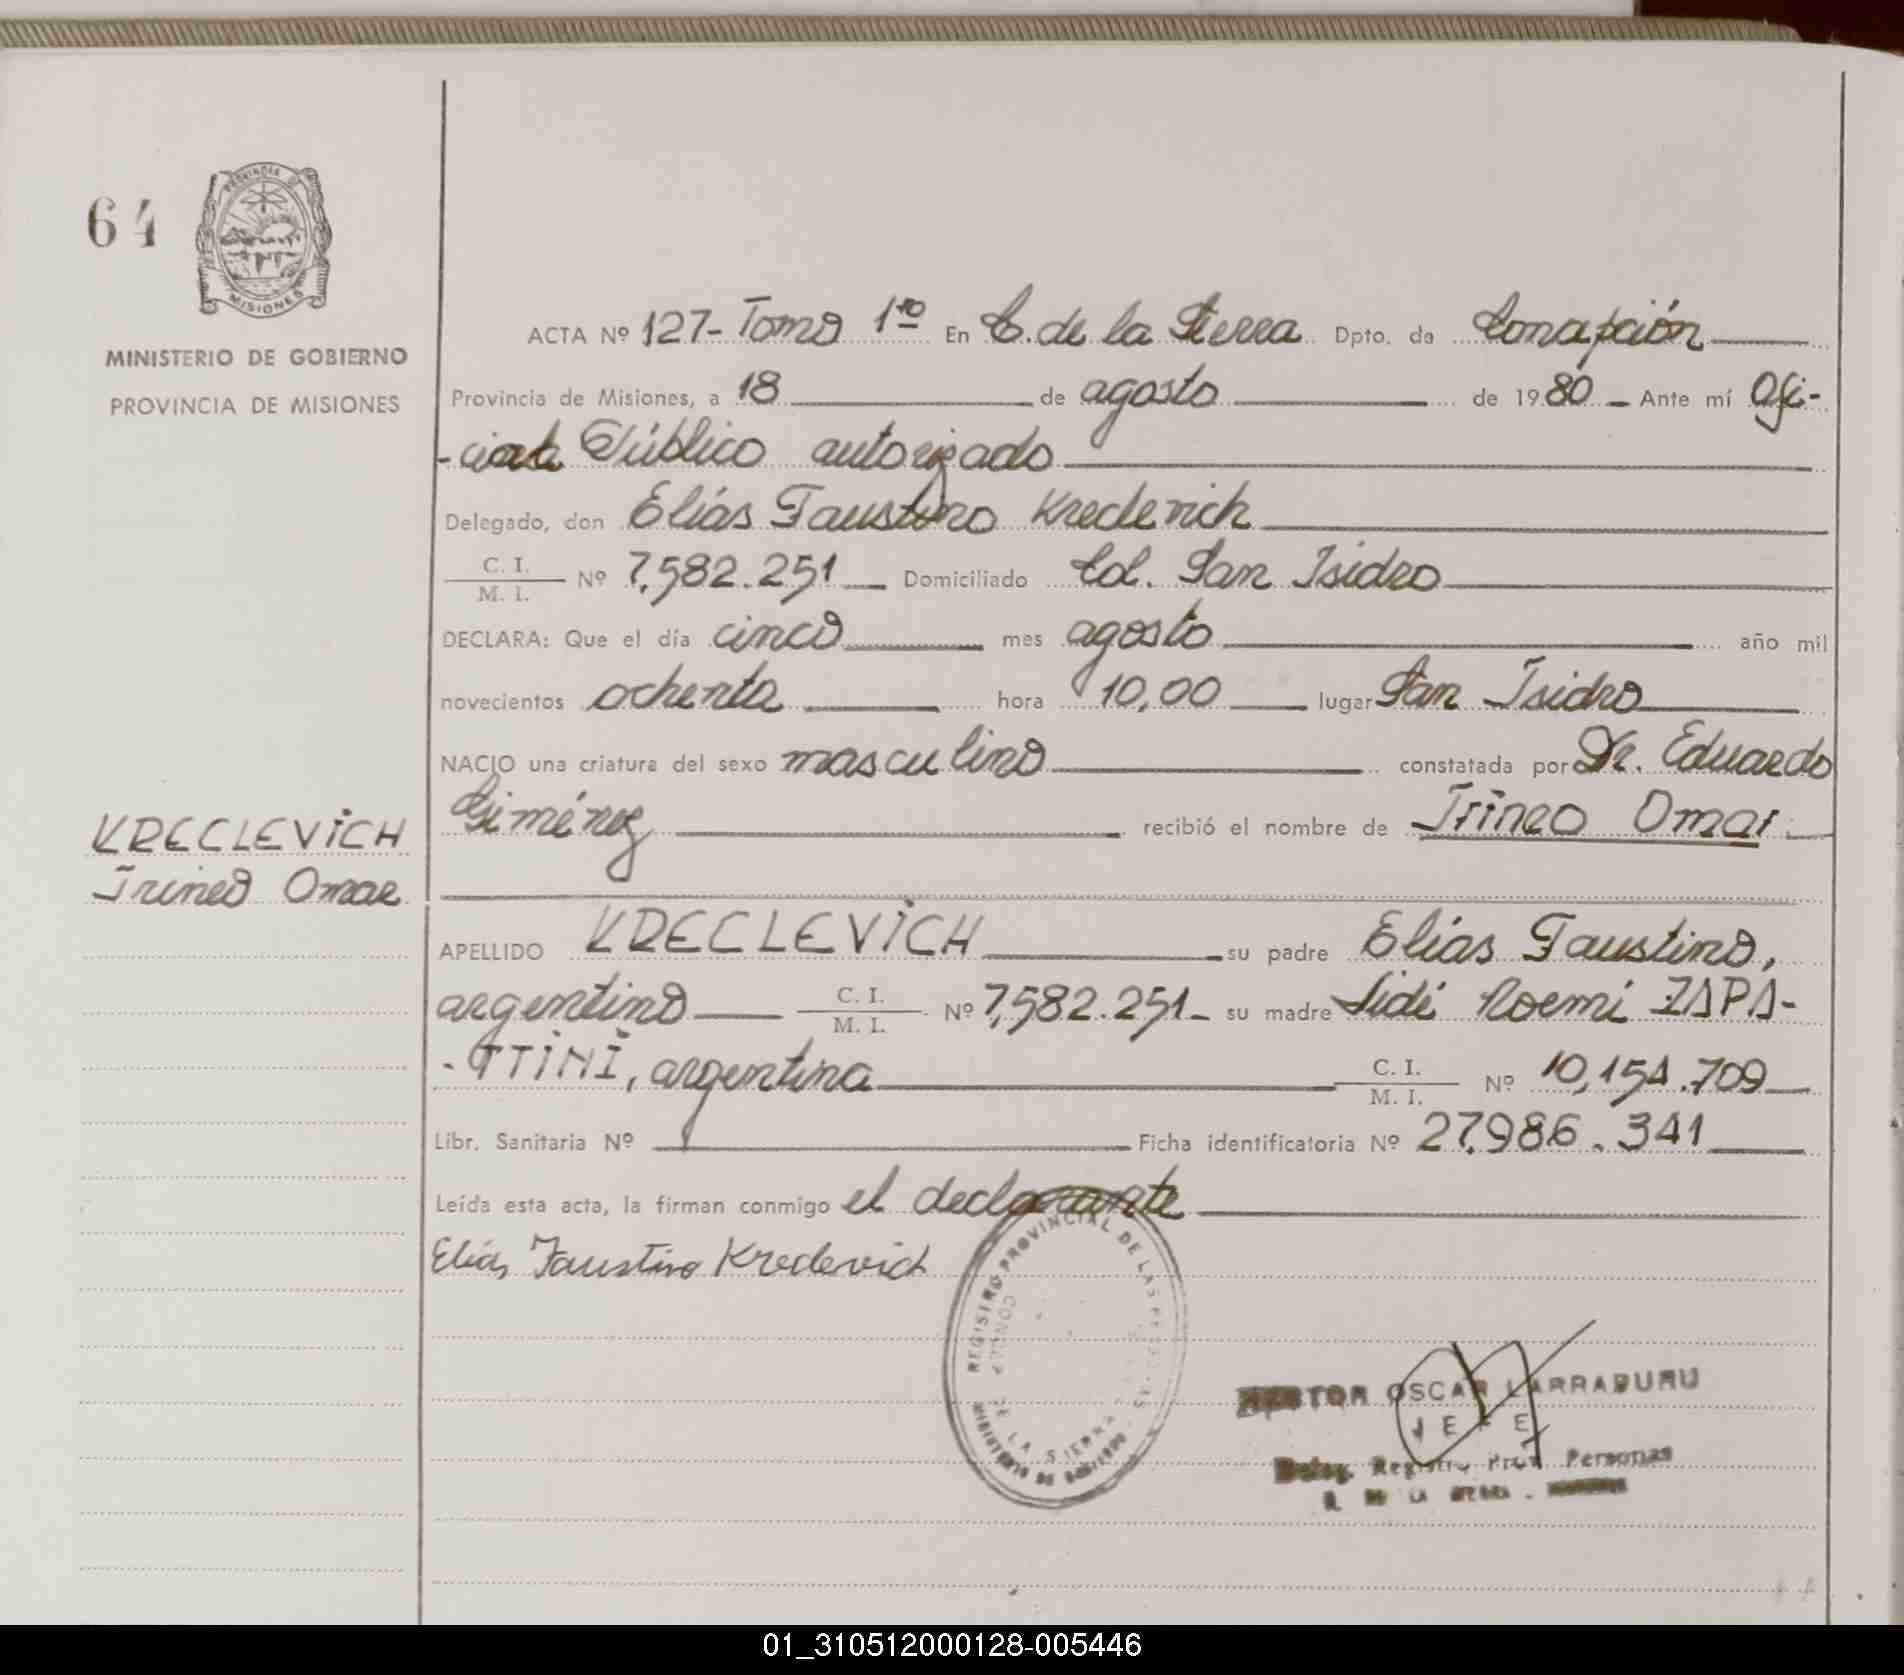 64
PROVINCIA DE
MISIONES
MINISTERIO DE GOBIERNO
PROVINCIA DE MISIONES
ACTA Nº 127- Tomo 1ro En C. de la Sierra Dpto. de Concepción
Provincia de Misiones, a 18 de agosto de 1980 Ante mí Ofi-
-cial Público autorizado
Delegado, don Elías Faustino Kreclevich
C. I.
M. I. Nº 7,582.251 Domiciliado Col. San Isidro
DECLARA: Que el día cinco mes agosto año mil
novecientos ochenta hora 10,00 lugar San Isidro
NACIO una criatura del sexo masculino constatada por Dr. Eduardo
Giménez recibió el nombre de Irineo Omar
KRECLEVICH
Irineo Omar
APELLIDO KRECLEVICH su padre Elías Faustino,
argentino C. I.
M. I. Nº 7,582.251- su madre Lidi Noemi ZAPA-
-TTINI, argentina C. I.
M. I. Nº 10,154.709
Libr. Sanitaria Nº Ficha identificatoria Nº 27.986.341
Leída esta acta, la firman conmigo el declarante
Elías Faustino Kreclevich
REGISTRO PROVINCIAL DE LAS PERSONAS
CONCEP. DE LA SIERRA
MINISTERIO DE GOBIERNO
OSCAR LARRABURU
JEFE
Deleg. Registro Prov. Personas
DE LA SIERRA -
01_310512000128-005446